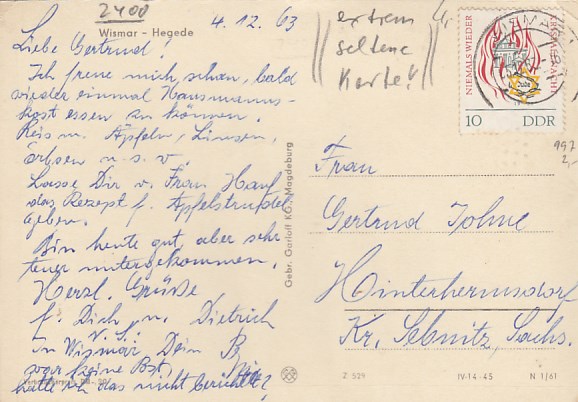 2400
Wismar - Hegede
4.12.63
extrem
seltene
Karte!
Liebe Gertrud!
Ich freue mich schon, bald
wieder einmal Hausmanns-
kost essen zu können.
Reis m. Äpfeln, Linsen,
Erbsen u. s. w.
Lasse Dir v. Frau Hauf
das Rezept f. Apfelstrudel
geben.
Bin heute gut, aber sehr
teuer untergekommen.
Herzl. Grüße
f. Dich u. Dietrich
in Wismar Dein
war keine Post,
hatte ich das nicht berichtet?
Gebr. Garloff KG., Magdeburg
NIEMALS WIEDER
Jude
10 DDR
997
2,-
Frau
Gertrud Johne
Hinterhermsdorf
Kr. Sebnitz, Sachs.
Z 529
IV-14-45
N 1/61